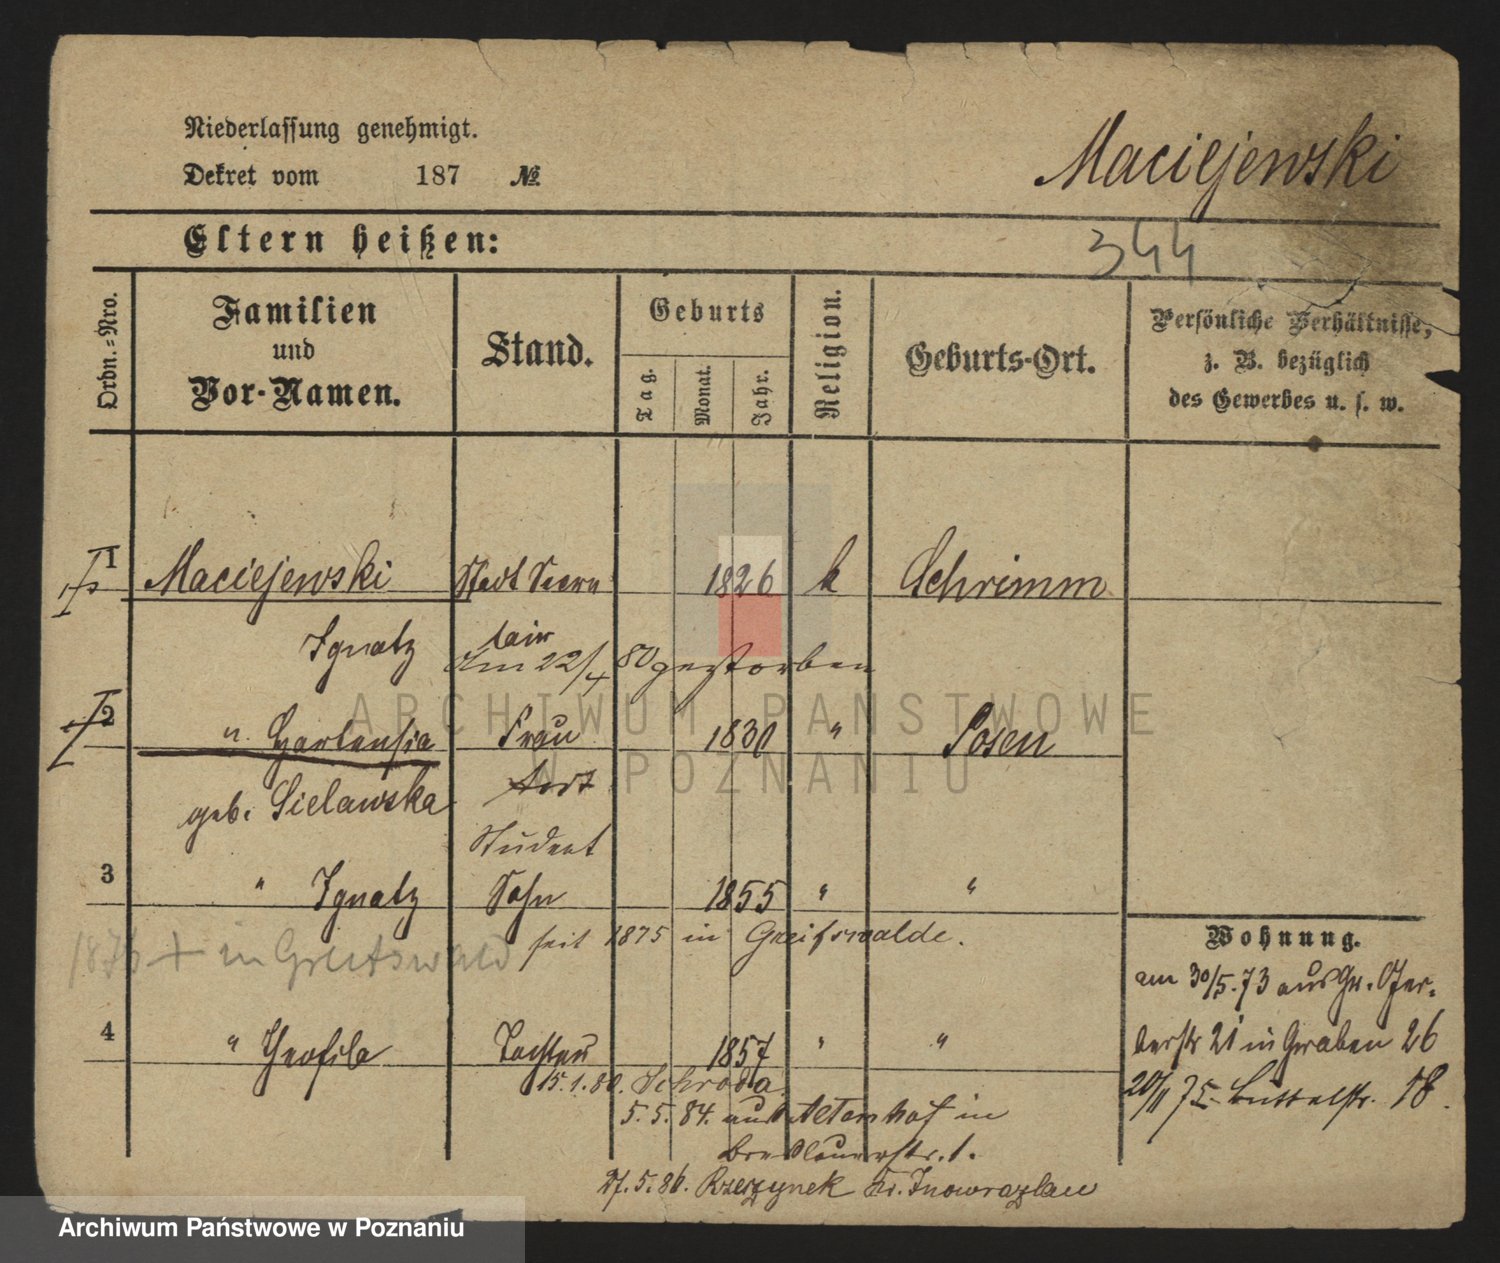 Niederlassung genehmigt.
Dekret vom 187 №
Maciejewski
344
Eltern heißen:
Ordn.-Nro.
Familien
und
Vor-Namen.
Stand.
Geburts
Tag.
Monat.
Jahr.
Religion.
Geburts-Ort.
Persönliche Verhältnisse,
z. B. bezüglich
des Gewerbes u. s. w.
1 Maciejewski Stadt 1826 k Schrimm
Ignatz
Am 22/4 80 gestorben
2 " Hortensia Frau 1830 " Posen
geb. Sielawska
Student
3 " Ignatz Sohn 1855 " "
seit 1875 in Greifswalde.
+ in Greifswald
4 " Theofila Tochter 1857 " "
15.1.80. Schroda
5.5.84. aus in
Breslauerstr. 1.
27.5.86. Rzeszynek Kr. Inowrazlaw
Wohnung.
am 30/5.73 aus Gr. Ger-
berstr 21 in Graben 26
20/11 75 Büttelstr. 18.
ARCHIWUM PAŃSTWOWE
W POZNANIU
Archiwum Państwowe w Poznaniu